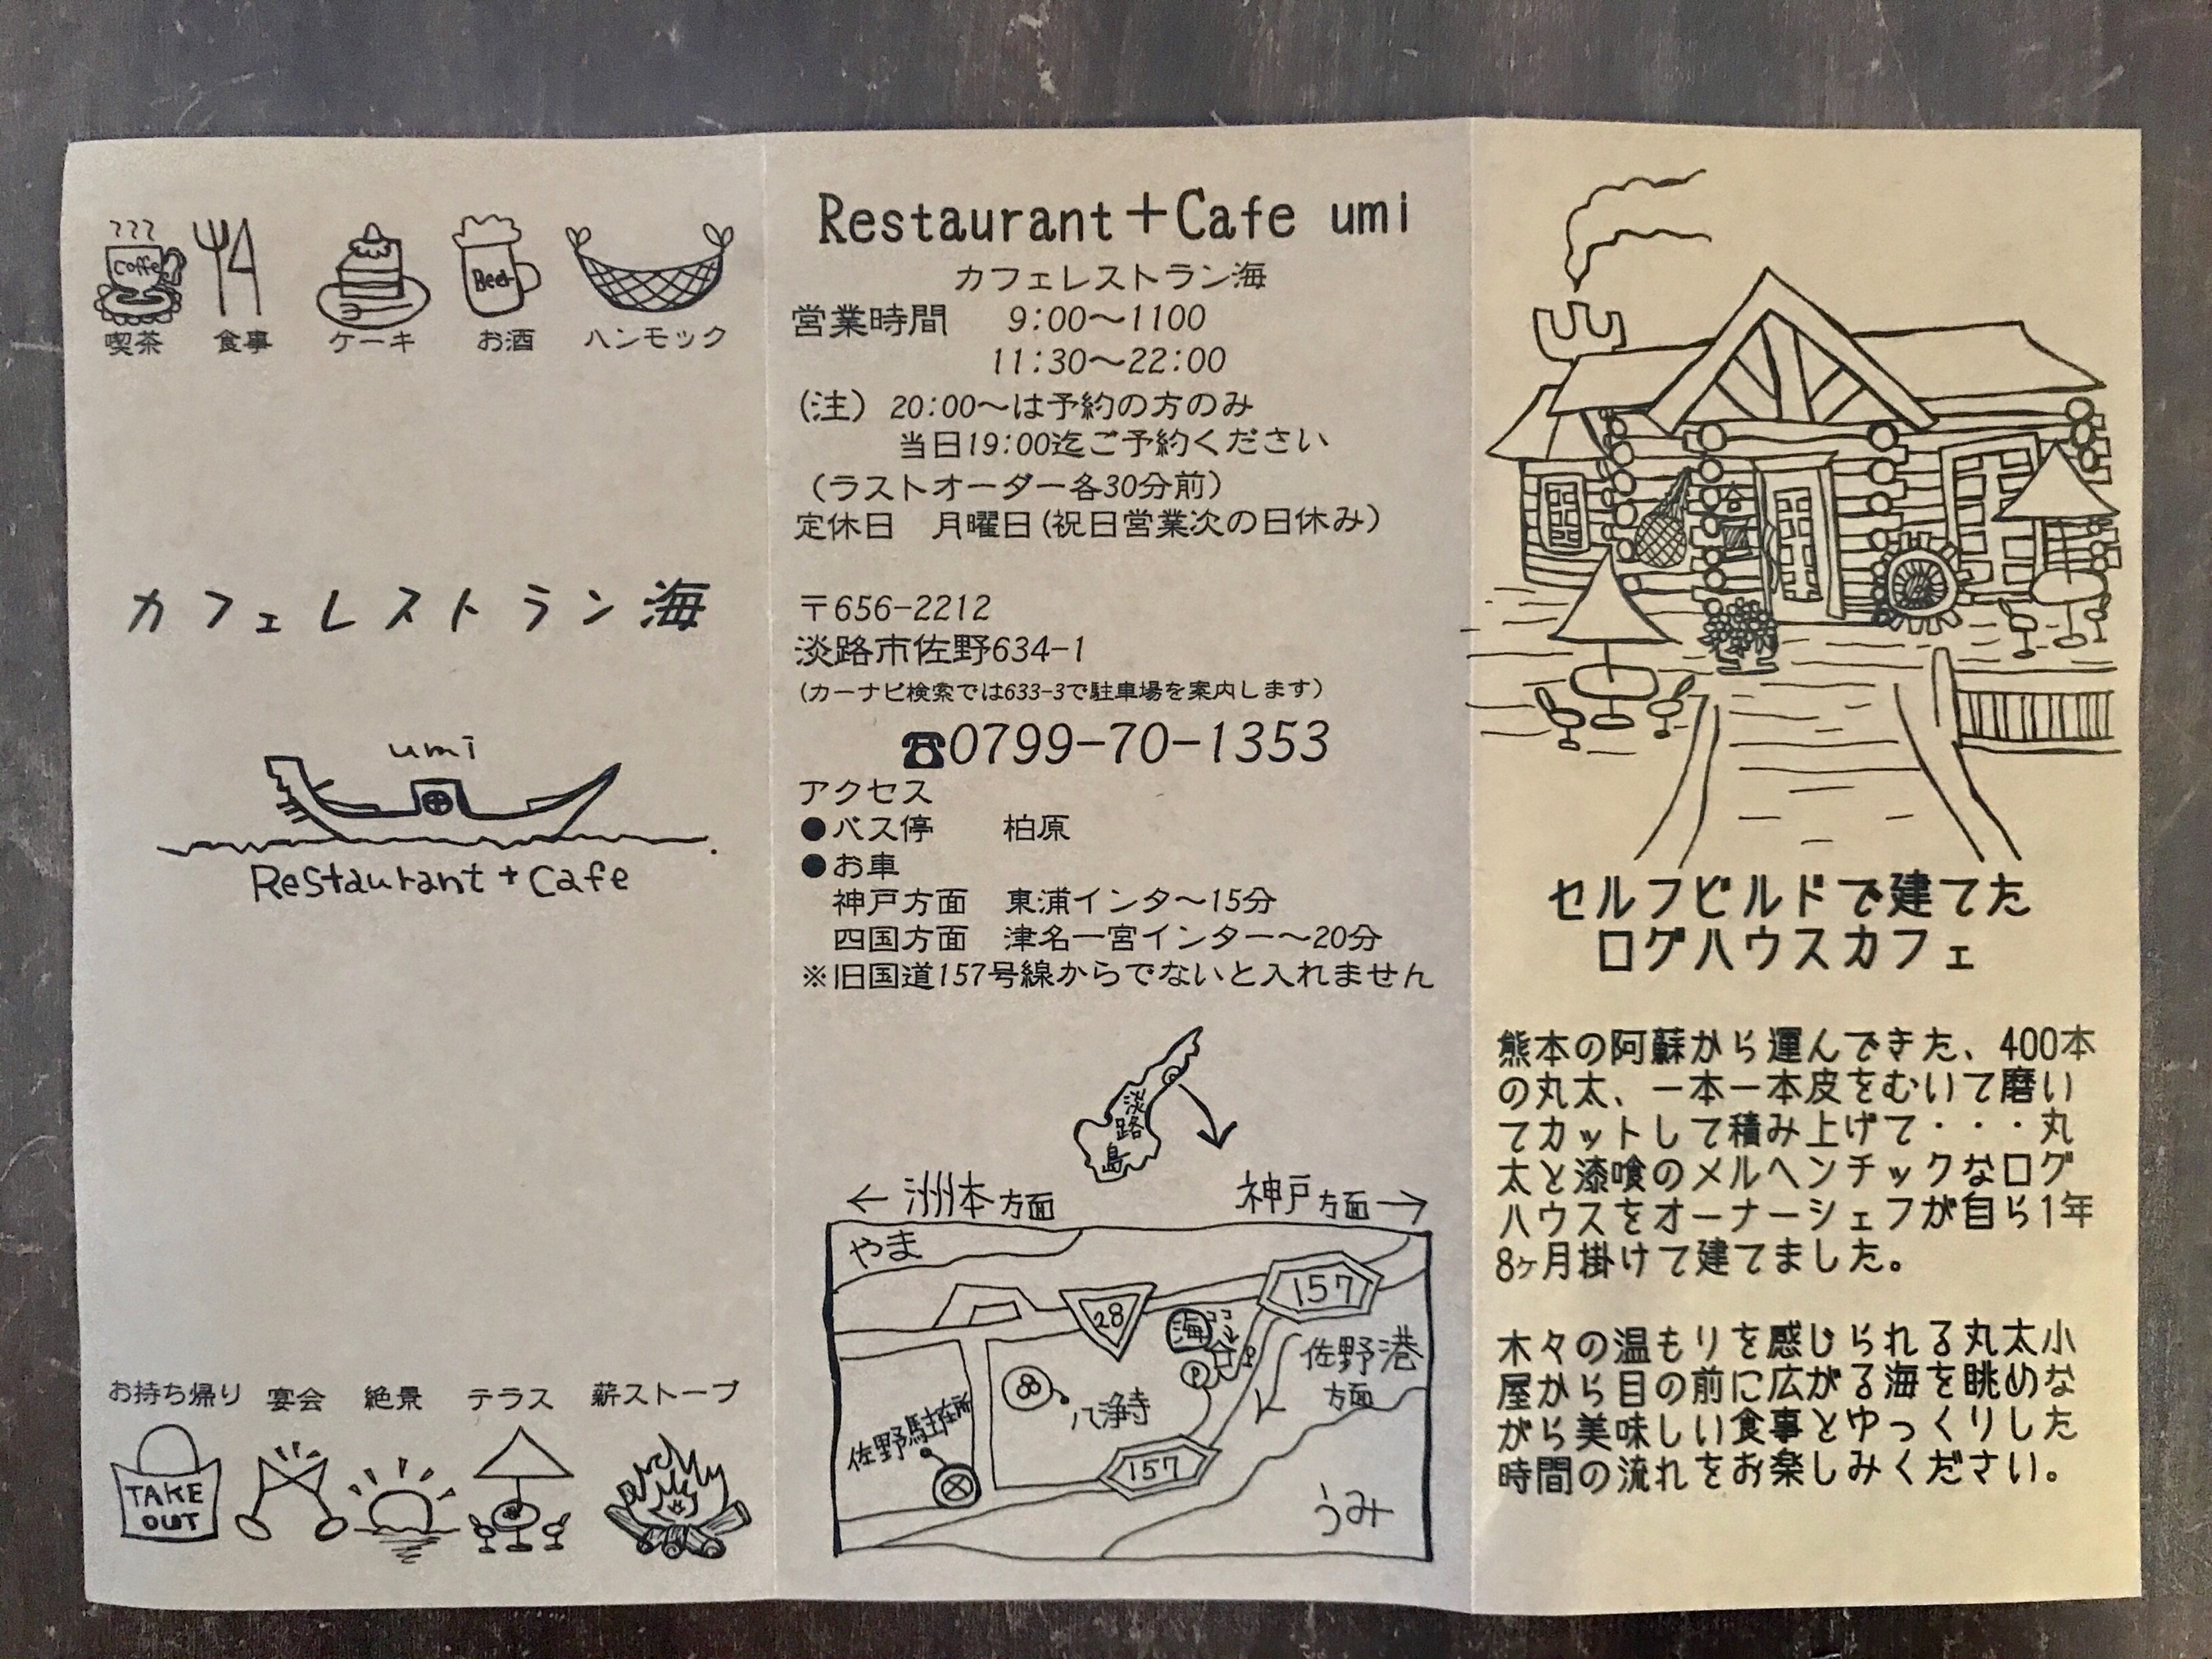 Coffe
Beer
喫茶 食事 ケーキ お酒 ハンモック
カフェレストラン海
umi
Restaurant + Cafe
お持ち帰り 宴会 絶景 テラス 薪ストーブ
TAKE
OUT
Restaurant＋Cafe umi
カフェレストラン海
営業時間 9:00〜1100
11:30〜22:00
（注）20:00〜は予約の方のみ
当日19:00迄ご予約ください
（ラストオーダー各30分前）
定休日 月曜日（祝日営業次の日休み）
〒656-2212
淡路市佐野634-1
（カーナビ検索では633-3で駐車場を案内します）
☎0799-70-1353
アクセス
●バス停 柏原
●お車
神戸方面 東浦インタ〜15分
四国方面 津名一宮インター〜20分
※旧国道157号線からでないと入れません
淡路島
← 洲本方面 神戸方面 →
やま
28
157
海
ココ
P
佐野港
方面
八浄寺
佐野駐在所
157
うみ
セルフビルドで建てた
ログハウスカフェ
熊本の阿蘇から運んできた、400本
の丸太、一本一本皮をむいて磨い
てカットして積み上げて・・・丸
太と漆喰のメルヘンチックなログ
ハウスをオーナーシェフが自ら1年
8ヶ月掛けて建てました。
木々の温もりを感じられる丸太小
屋から目の前に広がる海を眺めな
がら美味しい食事とゆっくりした
時間の流れをお楽しみください。